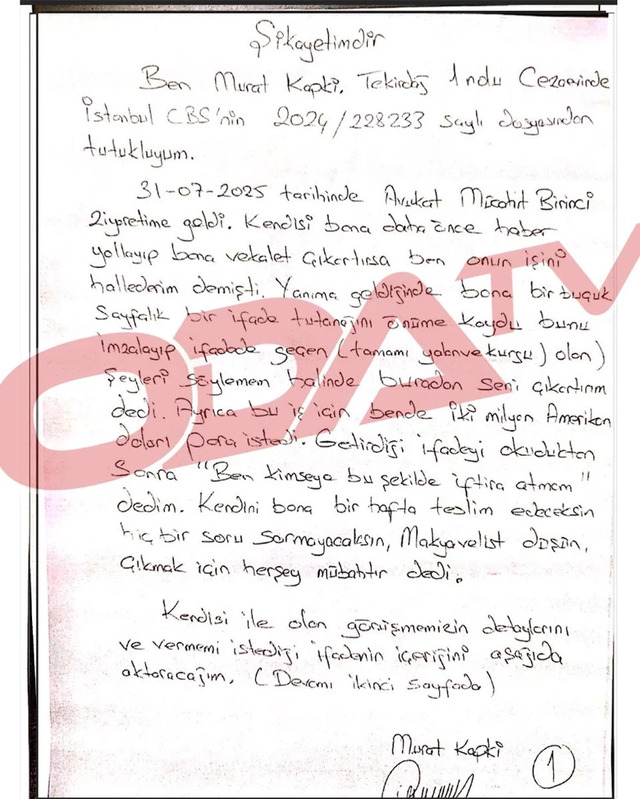 Şikayetimdir
Ben Murat Kapki. Tekirdağ 1 nolu Cezaevinde
İstanbul CBS'nin 2024/228233 sayılı dosyasından
tutukluyum.
31-07-2025 tarihinde Avukat Mücahit Birinci
Ziyaretime geldi. Kendisi bana daha önce haber
yollayıp bana vekalet çıkartırsa ben onun işini
hallederim demişti. Yanıma geldiğinde bana bir buçuk
Sayfalık bir ifade tutanağını önüme koydu bunu
imzalayıp ifadede geçen (tamamı yalan ve kurgu) olan)
Şeyleri söylemem halinde buradan seni çıkartırım
dedi. Ayrıca bu iş için bende iki milyon Amerikan
doları para istedi. Getirdiği ifadeyi okuduktan
Sonra "Ben kimseye bu şekilde iftira atmam"
dedim. Kendini bana bir hafta teslim edeceksin
hiç bir soru sormayacaksın, Makyavelist düşün,
Çıkmak için herşey mübahtır dedi.
Kendisi ile olan görüşmemizin detaylarını
ve vermemi istediği ifadenin içeriğini aşağıda
aktaracağım. (Devamı ikinci sayfada)
Murat Kapki
1
ODATV